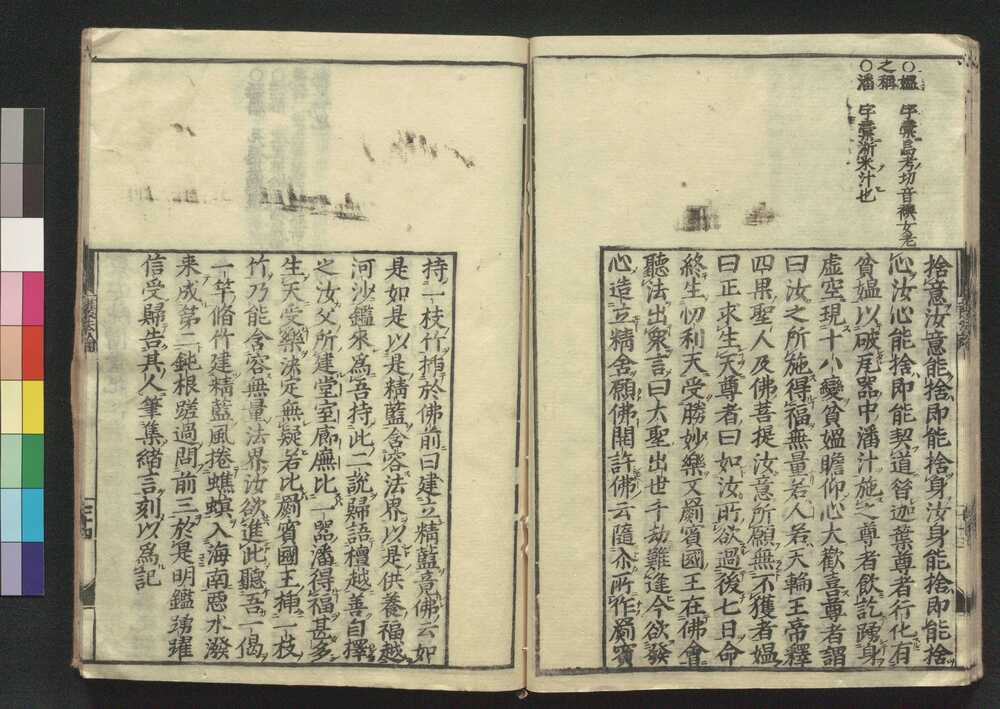 ○媼 字彙烏考切音襖女老
之稱
○潘 字彙淅米汁也
捨意汝意能捨即能捨身汝身能捨即能捨
心汝心能捨即能契道昝迦葉尊者行化有
貧媼以破瓦器中潘汁施之尊者飲訖踴身
虛空現十八變貧媼瞻仰心大歡喜尊者謂
曰汝之所施得福無量若人若天輪王帝釋
四果聖人及佛菩提汝意所願無不獲者媼
曰正求生天尊者曰如汝所欲過後七日命
終生忉利天受勝妙樂又罽賓國王在佛會
聽法出衆言曰大聖出世千劫難逢今欲發
心造立精舍願佛開許佛云隨尒所作罽賓
持一枝竹插於佛前曰建立精藍竟佛云如
是如是以是精藍含容法界以是供養福越
河沙鑑來爲吾持此二說歸語檀越善自擇
之汝父所建堂室廊廡比一器潘得福甚多
生天受樂決定無疑若比罽賓國王插一枝
竹乃能含容無量法界汝欲進此聽吾一偈
一竿脩竹建精藍風捲蟭螟入海南惡水潑
來成第二鈍根蹉過問前三於是明鑑踴躍
信受歸告其人筆集緒言刻以爲記